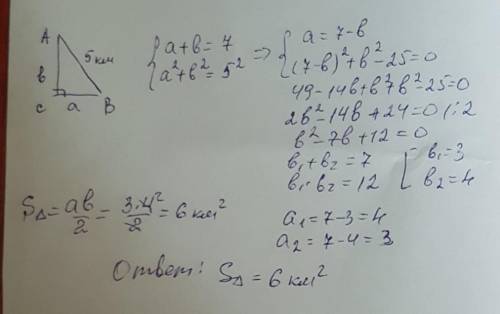 A
5 км
в
с a B
{ a+в = 7
a²+в² = 5²
=> { a = 7-в
(7-в)²+в²-25=0
49-14в+в²+в²-25=0
2в²-14в+24=0 /:2
в²-7в+12=0
в₁+в₂=7
в₁·в₂=12
[ в₁=3
в₂=4
S△ = aв/2 = 3·4²/2 = 6 км²
a₁=7-3=4
a₂=7-4=3
Ответ: S△ = 6 км²